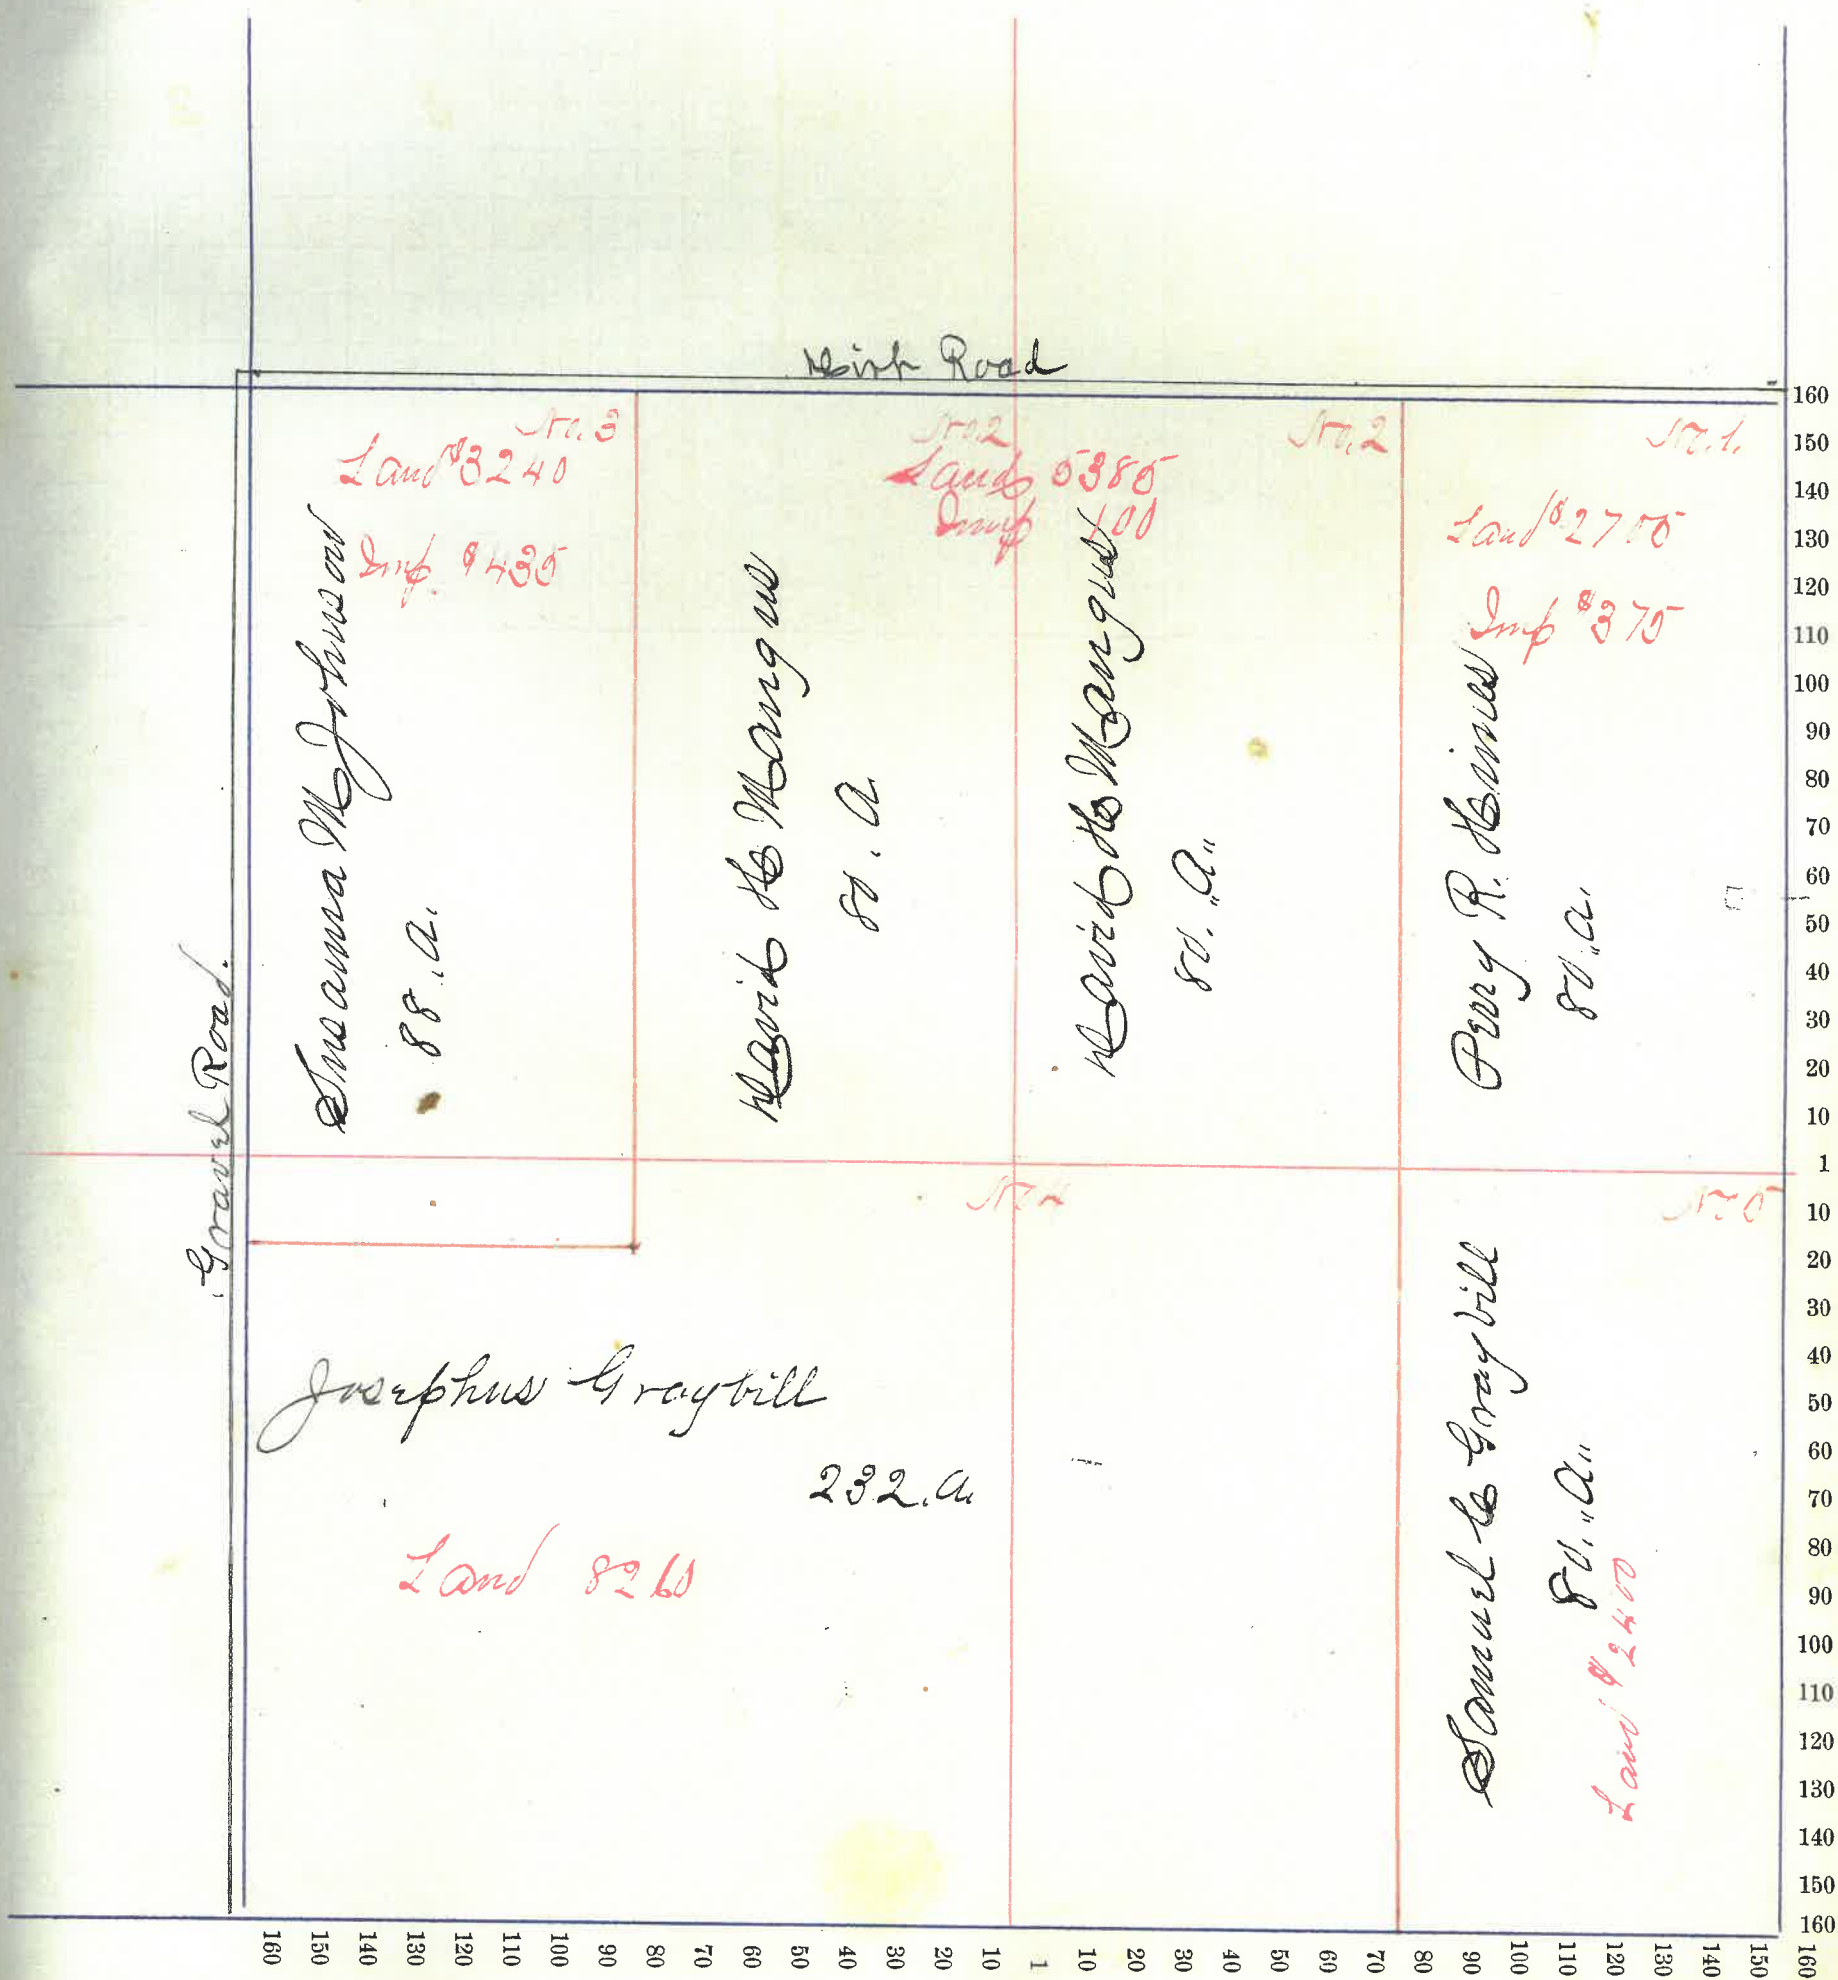 Dirt Road
No. 3
Land $3240
Imp. $435
Susanna M Johnson
88. a.
No. 2
Land 5385
Imp 100
David H Mangus
80. a.
No. 2
David H Mangus
80. "a"
No. 1.
Land $2705
Imp $375
Perry R. Himes
80. a.
Gravel Road.
No 4
Josephus Graybill
232. a.
Land 8260
No 5
Samuel C Graybill
80. "a"
Land $2400
160
150
140
130
120
110
100
90
80
70
60
50
40
30
20
10
1
10
20
30
40
50
60
70
80
90
100
110
120
130
140
150
160
160 150 140 130 120 110 100 90 80 70 60 50 40 30 20 10 1 10 20 30 40 50 60 70 80 90 100 110 120 130 140 150 160